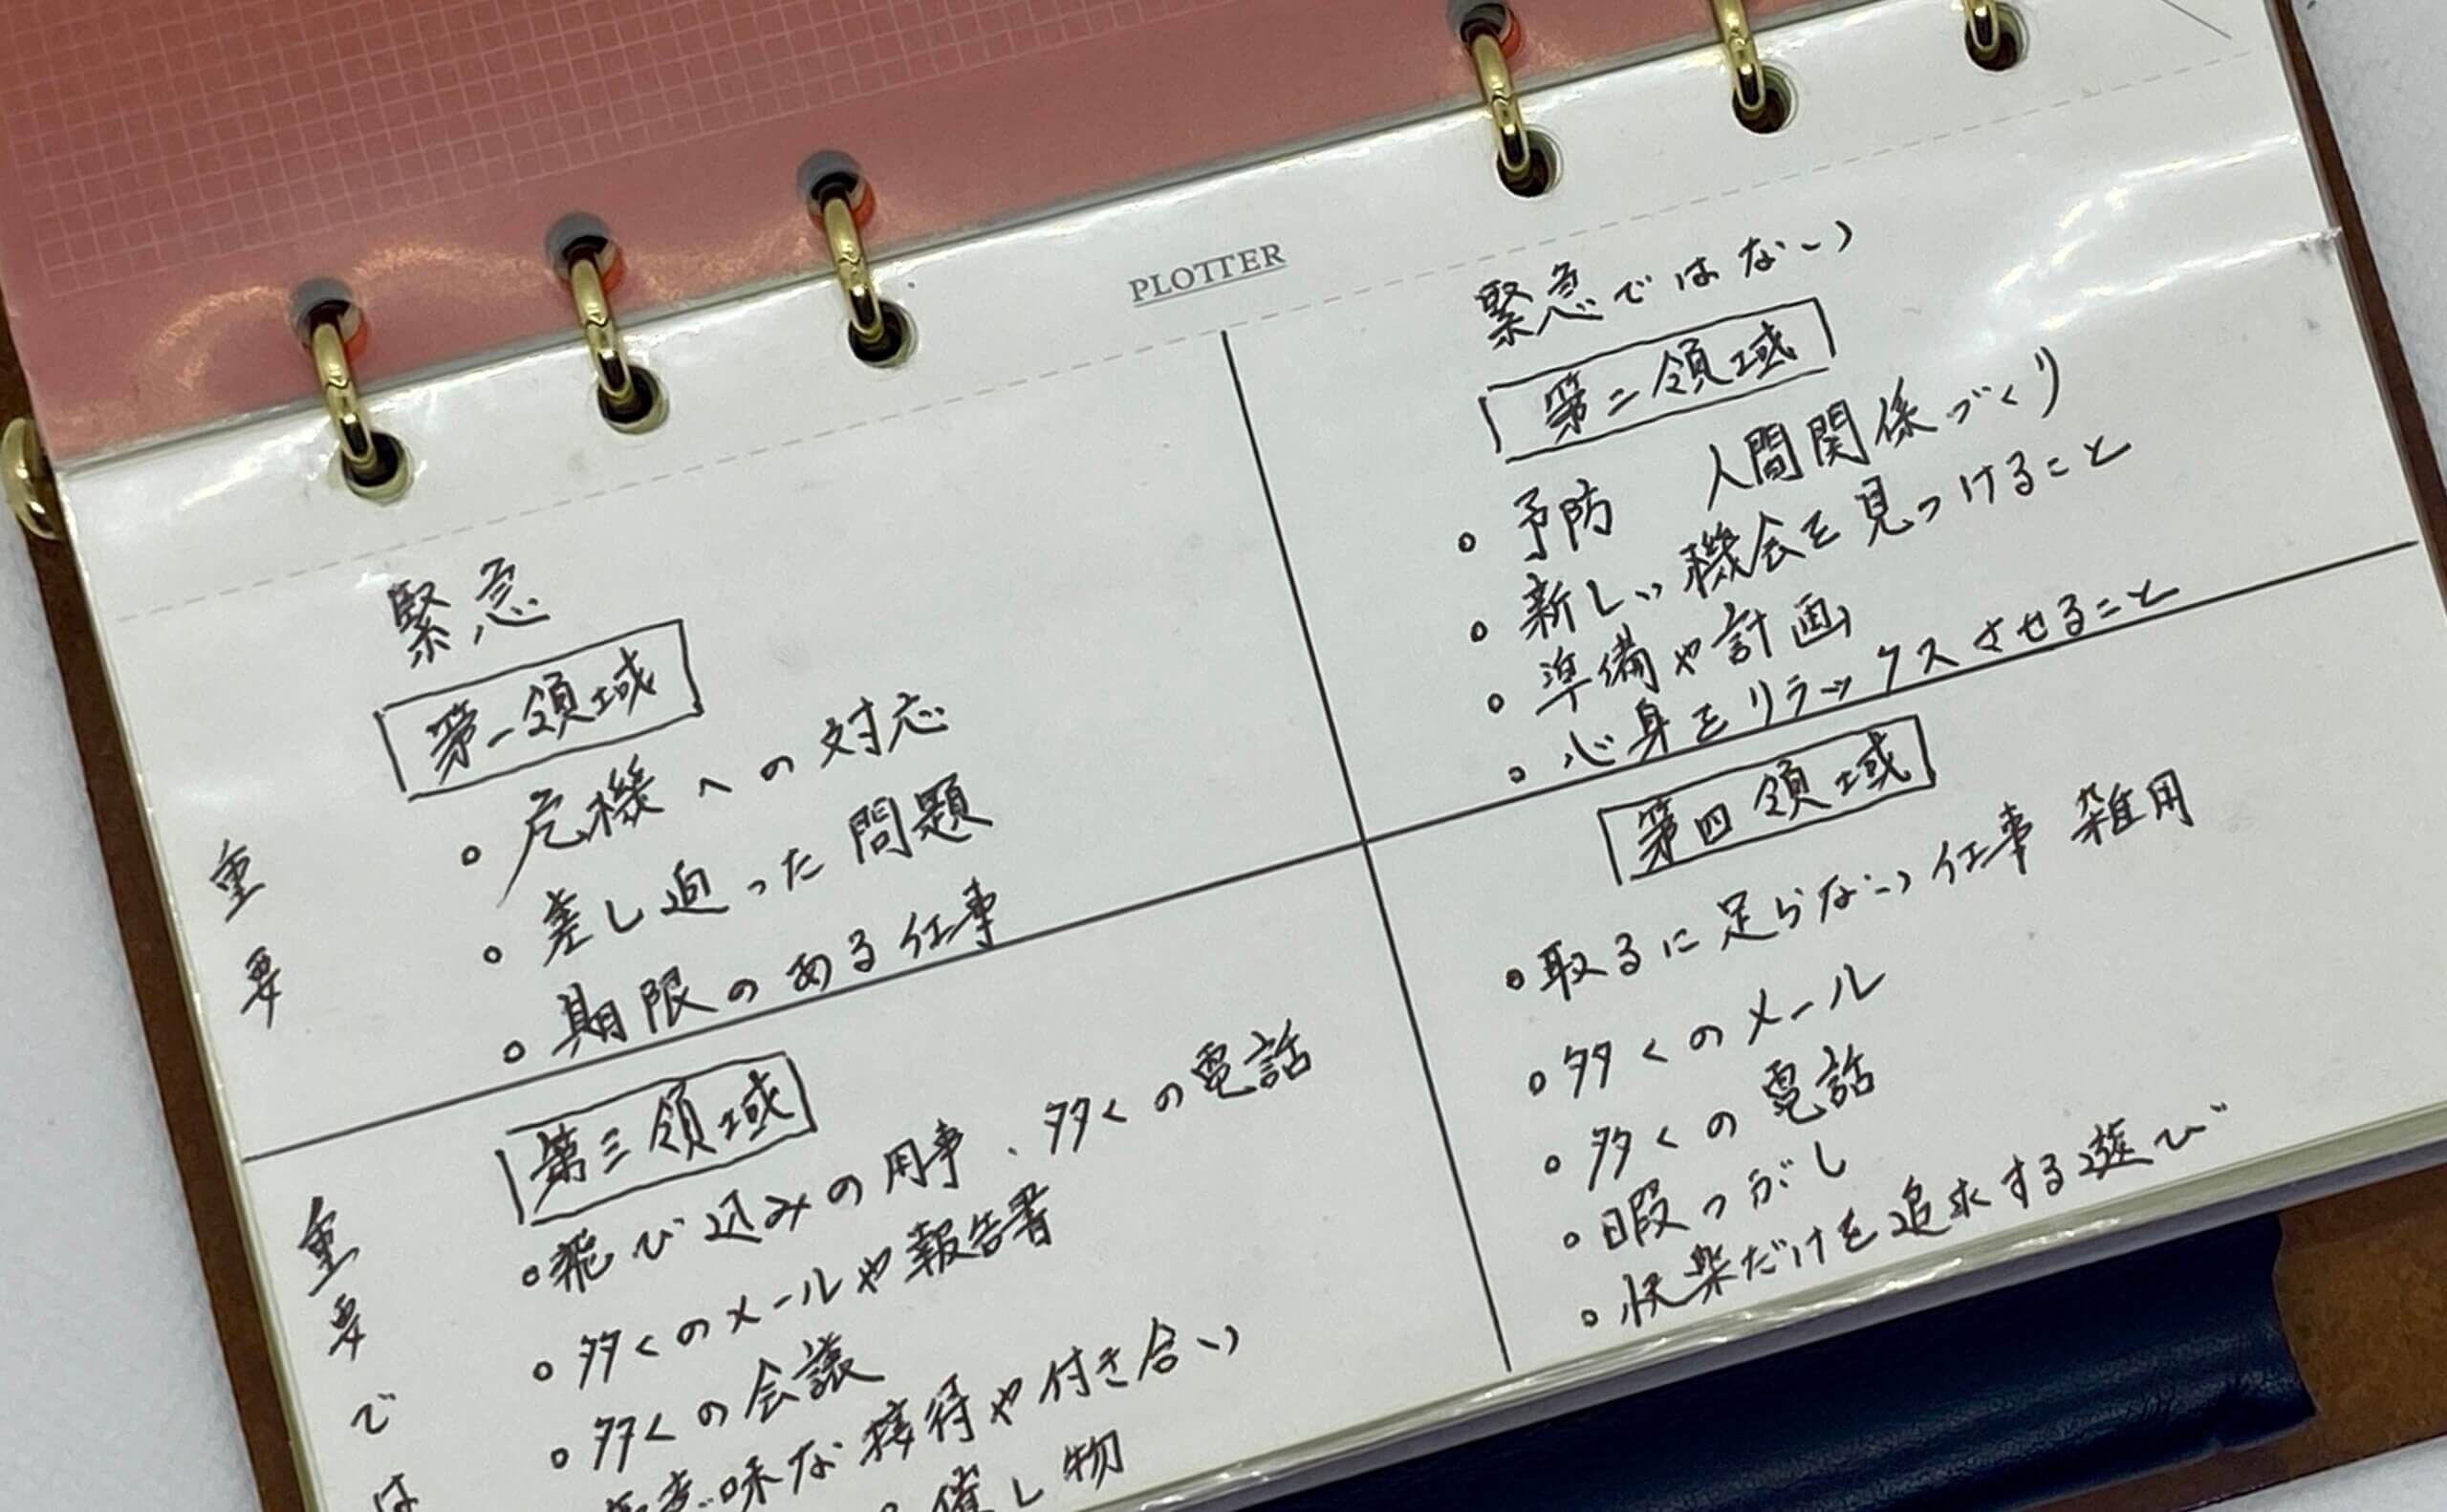 PLOTTER
緊急
緊急ではない
重要
第一領域
・危機への対応
・差し迫った問題
・期限のある仕事
第二領域
・予防 人間関係づくり
・新しい機会を見つけること
・準備や計画
・心身をリラックスさせること
重要では
第三領域
・飛び込みの用事、多くの電話
・多くのメールや報告書
・多くの会議
無意味な接待や付き合い
催し物
第四領域
・取るに足らない仕事 雑用
・多くのメール
・多くの電話
・暇つぶし
・快楽だけを追求する遊び